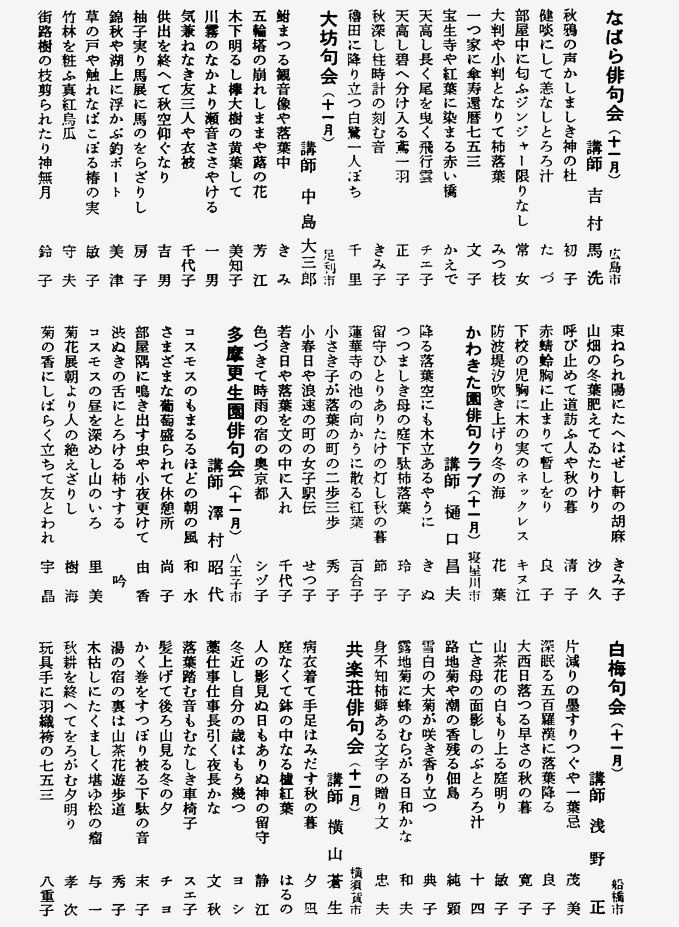 なばら俳句会（十一月）
広島市
講師　吉村馬洗
秋鴉の声かしましき神の杜　初子
健啖にして恙なしとろろ汁　たづ
部屋中に匂ふジンジャー限りなし　常女
大判や小判となりて柿落葉　みつ枝
一つ家に傘寿還暦七五三　文子
宝生寺や紅葉に染まる赤い橋　かえで
天高し長く尾を曳く飛行雲　チエ子
天高し碧へ分け入る鳶一羽　正子
秋深し柱時計の刻む音　きみ子
穭田に降り立つ白鷺一人ぼち　千里
大坊句会（十一月）
足利市
講師　中島大三郎
鮒まつる観音像や落葉中　きみ
五輪塔の崩れしままや蕗の花　芳江
木下明るし欅大樹の黄葉して　美知子
川霧のなかより瀬音ささやける　一男
気兼ねなき友三人や衣被　千代子
供出を終へて秋空仰ぐなり　吉男
柚子実り馬展に馬のをらざりし　房子
錦秋や湖上に浮かぶ釣ボート　美津
草の戸や触れなばこぼる椿の実　敏子
竹林を粧ふ真紅烏瓜　守夫
街路樹の枝剪られたり神無月　鈴子
束ねられ陽にたへはぜし軒の胡麻　きみ子
山畑の冬葉肥えてゐたりけり　沙久
呼び止めて道訪ふ人や秋の暮　清子
赤蜻蛉胸に止まりて暫しをり　良子
下校の児胸に木の実のネックレス　キヌ江
防波堤汐吹き上げり冬の海　花葉
かわきた園俳句クラブ（十一月）
寝屋川市
講師　樋口昌夫
降る落葉空にも木立あるやうに　きぬ
つつましき母の庭下駄柿落葉　玲子
留守ひとりありたけの灯し秋の暮　節子
蓮華寺の池の向かうに散る紅葉　百合子
小さき子が落葉の町の二歩三歩　秀子
小春日や浪速の町の女子駅伝　せつ子
若き日や落葉を文の中に入れ　千代子
色づきて時雨の宿の奥京都　シヅ子
多摩更生園俳句会（十一月）
八王子市
講師　澤村昭代
コスモスのもまるるほどの朝の風　和水
さまざまな葡萄盛られて休憩所　尚子
部屋隅に鳴き出す虫や小夜更けて　由香
渋ぬきの舌にとろける柿すする　吟
コスモスの昼を深めし山のいろ　里美
菊花展朝より人の絶えざりし　樹海
菊の香にしばらく立ちて友とわれ　宇晶
白梅句会（十一月）
船橋市
講師　浅野正
片減りの墨すりつぐや一葉忌　茂美
深眠る五百羅漢に落葉降る　良子
大西日落つる早さの秋の暮　寛子
山茶花の白もり上る庭明り　敏子
亡き母の面影しのぶとろろ汁　十四
路地菊や潮の香残る佃島　純顕
雪白の大菊が咲き香り立つ　典子
露地菊に蜂のむらがる日和かな　和夫
身不知柿癖ある文字の贈り文　忠夫
共楽荘俳句会（十一月）
横須賀市
講師　横山蒼生
病衣着て手足はみだす秋の暮　夕凪
庭なくて鉢の中なる櫨紅葉　はるの
人の影見ぬ日もありぬ神の留守　静江
冬近し自分の歳はもう幾つ　ヨシ
藁仕事仕事長引く夜長かな　文秋
落葉踏む音もむなしき車椅子　スエ子
髪上げて後ろ山見る冬の夕　チヨ
かく巻をすつぽり被る下駄の音　末子
湯の宿の裏は山茶花遊歩道　秀子
木枯しにたくましく堪ゆ松の瘤　与一
秋耕を終へてをろがむ夕明り　孝次
玩具手に羽織袴の七五三　八重子